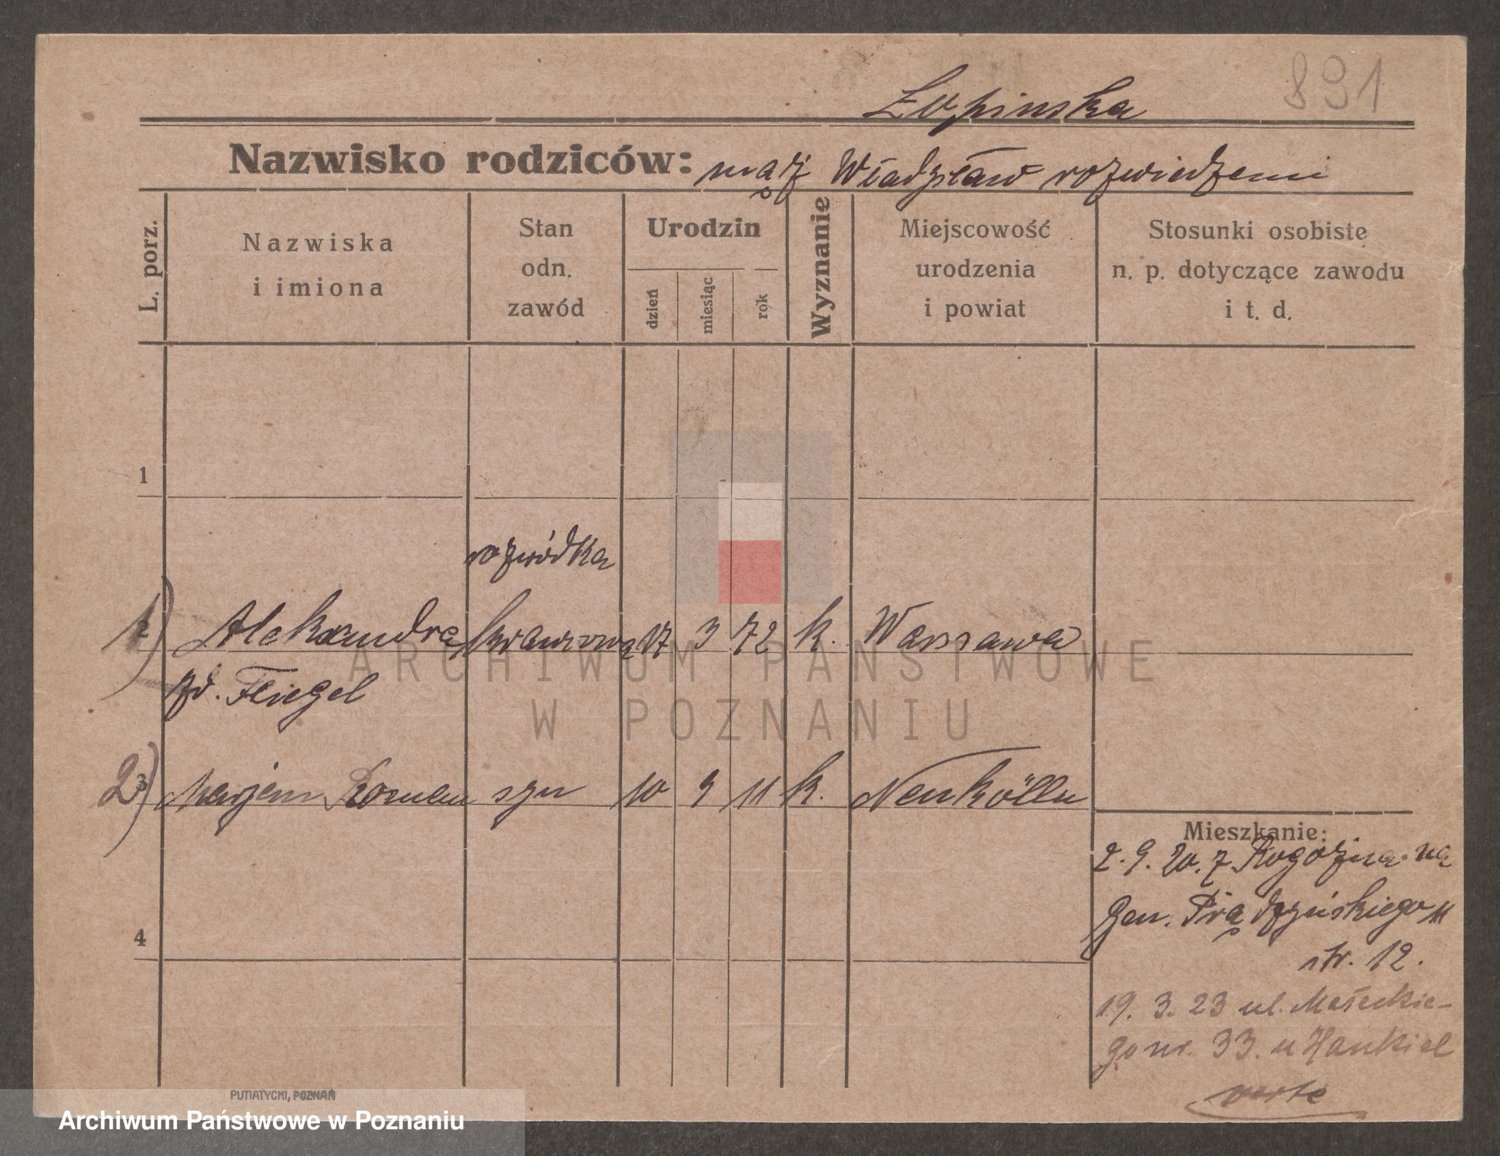 891
Łopinska
Nazwisko rodziców: mąż Władysław rozwiedzeni
L. porz.
Nazwiska
i imiona
Stan
odn.
zawód
Urodzin
dzień
miesiąc
rok
Wyznanie
Miejscowość
urodzenia
i powiat
Stosunki osobiste
n. p. dotyczące zawodu
i t. d.
1
rozwódka
1) Aleksandra krawcowa 17 3 72 k. Warszawa
zd. Fliegel
2) Marjan Roman syn 10 9 11 k. Neukölln
Mieszkanie:
2. 9. 20. z Rogoźna na
Gen. Prądzyńskiego
str. 12.
4
19. 3. 23 ul. Małeckie-
go nr. 33. u Hankiel
verte
PUTIATYCKI, POZNAŃ
ARCHIWUM PAŃSTWOWE
W POZNANIU
Archiwum Państwowe w Poznaniu